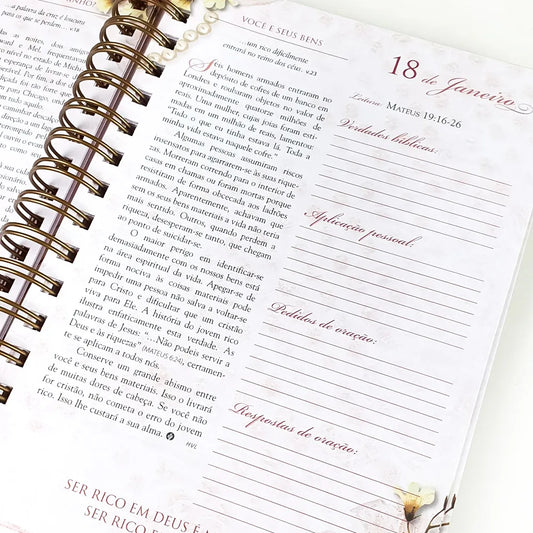 a palavra da cruz é loucura
para os que se perdem...
VOCÊ E SEUS BENS
...um rico dificilmente
entrará no reino dos céus. v.23
Seis homens armados entraram no
depósito de cofres de um banco em
Londres e roubaram objetos no valor de
aproximadamente quatorze milhões de
reais. Uma mulher, cujas joias foram esti-
madas em um milhão de reais, lamentou:
"Tudo o que eu tinha estava lá. Toda a
minha vida estava naquele cofre."
Algumas pessoas assumiram riscos
insensatos para agarrarem-se às suas rique-
zas. Morreram correndo para o interior de
casas em chamas ou foram mortas porque
resistiram de forma obcecada aos ladrões
armados. Aparentemente, achavam que
sem os seus bens materiais a vida não teria
mais sentido. Outros, quando perdem a
riqueza, desesperam-se tanto, que chegam
ao ponto de suicidar-se.
O maior perigo em identificar-se
demasiadamente com os nossos bens está
na área espiritual da vida. Apegar-se de
forma nociva às coisas materiais pode
impedir uma pessoa não salva a voltar-se
para Cristo e dificultar que um cristão
viva para Ele. A história do jovem rico
ilustra enfaticamente esta verdade. As
palavras de Jesus: "...Não podeis servir a
Deus e às riquezas" (MATEUS 6:24), certamen-
te se aplicam a todos nós.
Conserve um grande abismo entre
você e seus bens materiais. Isso o livrará
de muitas dores de cabeça. Se você não
for cristão, não cometa o erro do jovem
rico. Isso lhe custará a sua alma.
HVL
SER RICO EM DEUS É
SER RICO E
18 de Janeiro
Leitura: MATEUS 19:16-26
Verdades bíblicas:
Aplicação pessoal:
Pedidos de oração:
Respostas de oração: